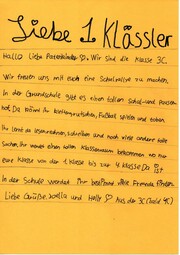 Liebe 1 Klässler
Hallo Liebe Patenkinder ♡. Wir sind die Klasse 3C.
Wir freuen uns mit euch eine Schulreise zu machen.
In der Grundschule gibt es einen tollen Schul- und Pausen
hof. Da könnt ihr Klettergerüsten, Fußball spielen und toben.
Ihr lernt da lesen, rechnen, schreiben und noch viele andere tolle
Sachen. Ihr werdet einen tollen Klassenraum bekommen wo nur
eine Klasse von der 1 Klasse bis zur 4 Klasse Da ist
In der Schule werdet ihr bestimmt viele Freunde finden.
Liebe Grüße Joella und Holly ♡ Aus der 3C (bald 4C)